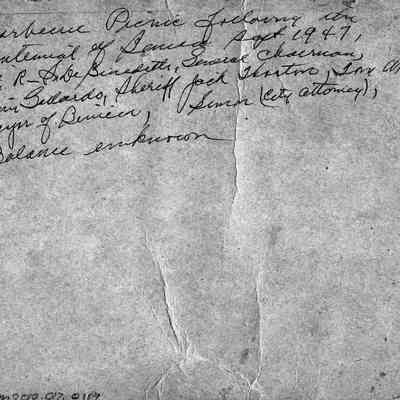 arbecue Picnic following the
ntennial of Benicia Sept 1947,
R. S. De Benedetti, General Chairman,
Gillards, Sheriff Jack Thornton,
ayor of Benicia, Simon (City attorney),
Balance unknown